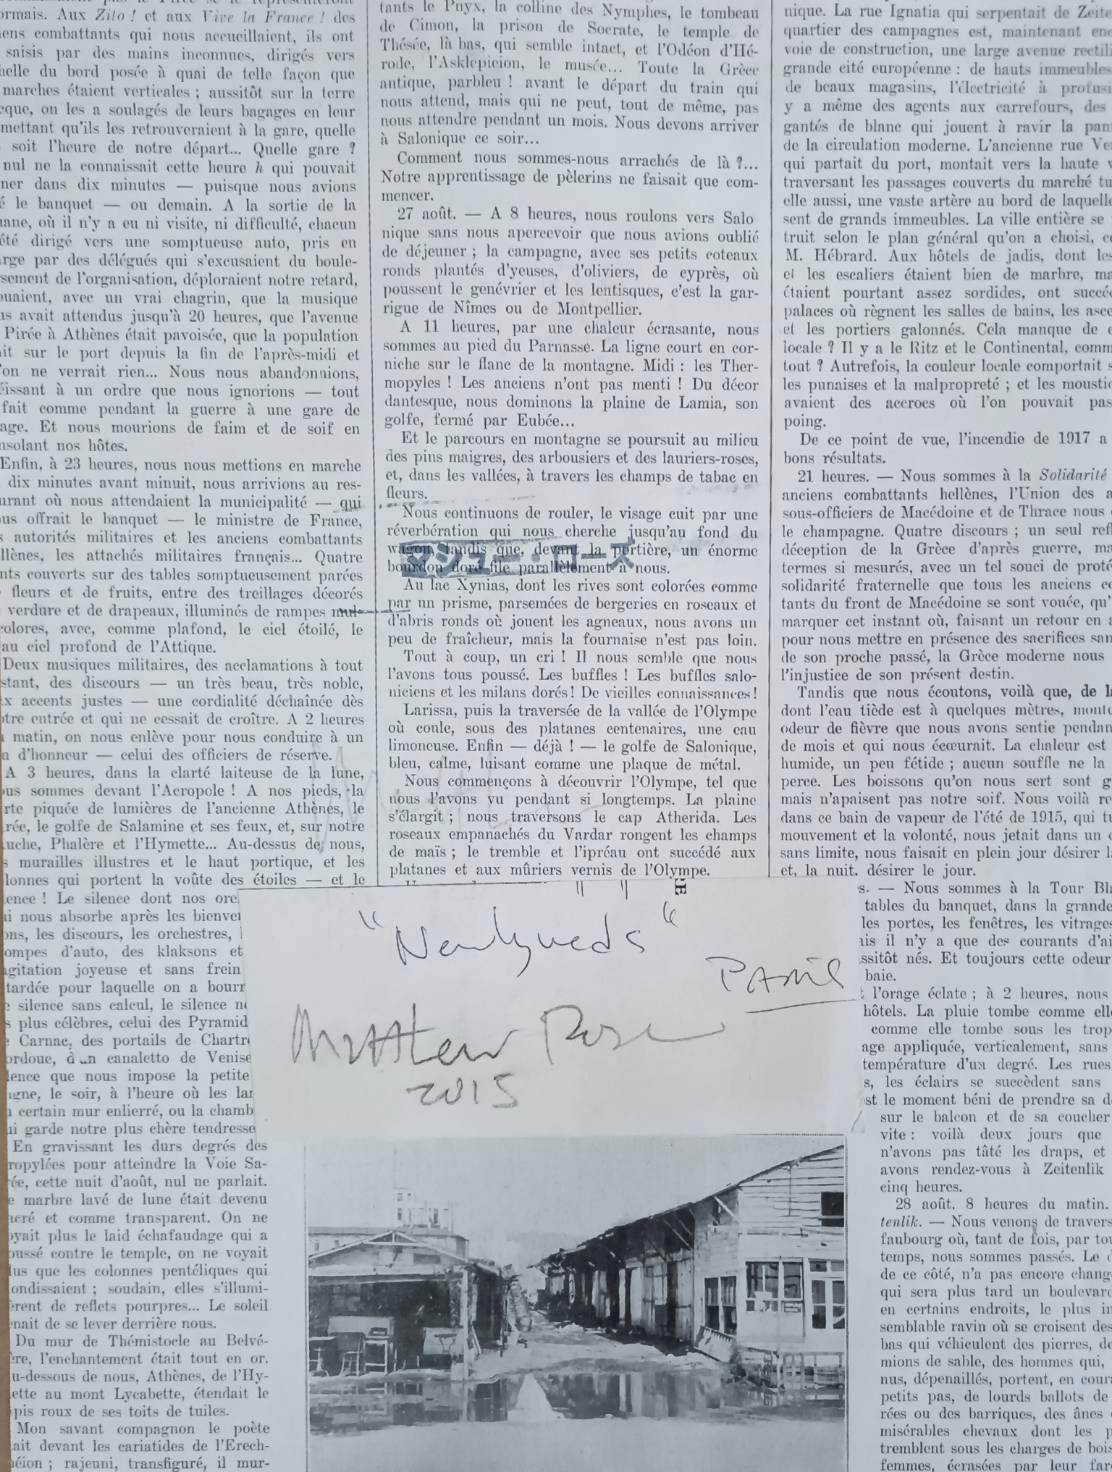 ormais. Aux Zito ! et aux Vive la France ! des
iens combattants qui nous accueillaient, ils ont
saisis par des mains inconnues, dirigés vers
helle du bord posée à quai de telle façon que
marches étaient verticales ; aussitôt sur la terre
cque, on les a soulagés de leurs bagages en leur
mettant qu'ils les retrouveraient à la gare, quelle
soit l'heure de notre départ... Quelle gare ?
nul ne la connaissait cette heure h qui pouvait
ner dans dix minutes — puisque nous avions
é le banquet — ou demain. A la sortie de la
uane, où il n'y a eu ni visite, ni difficulté, chacun
été dirigé vers une somptueuse auto, pris en
arge par des délégués qui s'excusaient du boule-
sement de l'organisation, déploraient notre retard,
ouaient, avec un vrai chagrin, que la musique
us avait attendus jusqu'à 20 heures, que l'avenue
Pirée à Athènes était pavoisée, que la population
ait sur le port depuis la fin de l'après-midi et
'on ne verrait rien... Nous nous abandonnions,
éissant à un ordre que nous ignorions — tout
fait comme pendant la guerre à une gare de
age. Et nous mourions de faim et de soif en
nsolant nos hôtes.
Enfin, à 23 heures, nous nous mettions en marche
dix minutes avant minuit, nous arrivions au res-
urant où nous attendaient la municipalité — qui
ous offrait le banquet — le ministre de France,
s autorités militaires et les anciens combattants
llènes, les attachés militaires français... Quatre
nts couverts sur des tables somptueusement parées
fleurs et de fruits, entre des treillages décorés
verdure et de drapeaux, illuminés de rampes mul-
colores, avec, comme plafond, le ciel étoilé, le
au ciel profond de l'Attique.
Deux musiques militaires, des acclamations à tout
stant, des discours — un très beau, très noble,
x accents justes — une cordialité déchaînée dès
otre entrée et qui ne cessait de croître. A 2 heures
matin, on nous enlève pour nous conduire à un
n d'honneur — celui des officiers de réserve.
A 3 heures, dans la clarté laiteuse de la lune,
ous sommes devant l'Acropole ! A nos pieds, la
rte piquée de lumières de l'ancienne Athènes, le
rée, le golfe de Salamine et ses feux, et, sur notre
uche, Phalère et l'Hymette... Au-dessus de nous,
s murailles illustres et le haut portique, et les
lonnes qui portent la voûte des étoiles — et le
lence ! Le silence dont nos orc
ui nous absorbe après les bienve
ons, les discours, les orchestres,
ompes d'auto, des klaksons et
gitation joyeuse et sans frein
tardée pour laquelle on a bourr
silence sans calcul, le silence n
s plus célèbres, celui des Pyramid
Carnac, des portails de Chartr
ordoue, d'un canaletto de Venise
lence que nous impose la petite
igne, le soir, à l'heure où les la
certain mur enlierré, ou la chamb
ui garde notre plus chère tendresse
En gravissant les durs degrés des
ropylées pour atteindre la Voie Sa-
rée, cette nuit d'août, nul ne parlait.
e marbre lavé de lune était devenu
acré et comme transparent. On ne
oyait plus le laid échafaudage qui a
oussé contre le temple, on ne voyait
lus que les colonnes pentéliques qui
ondissaient ; soudain, elles s'illumi-
èrent de reflets pourpres... Le soleil
enait de se lever derrière nous.
Du mur de Thémistocle au Belvé-
ère, l'enchantement était tout en or.
u-dessous de nous, Athènes, de l'Hy-
ette au mont Lycabette, étendait le
pis roux de ses toits de tuiles.
Mon savant compagnon le poète
ait devant les cariatides de l'Erech-
héion ; rajeuni, transfiguré, il mur-
tants le Pnyx, la colline des Nymphes, le tombeau
de Cimon, la prison de Socrate, le temple de
Thésée, là bas, qui semble intact, et l'Odéon d'Hé-
rode, l'Asklepicion, le musée... Toute la Grèce
antique, parbleu ! avant le départ du train qui
nous attend, mais qui ne peut, tout de même, pas
nous attendre pendant un mois. Nous devons arriver
à Salonique ce soir...
Comment nous sommes-nous arrachés de là ?...
Notre apprentissage de pèlerins ne faisait que com-
mencer.
27 août. — A 8 heures, nous roulons vers Salo
nique sans nous apercevoir que nous avions oublié
de déjeuner ; la campagne, avec ses petits coteaux
ronds plantés d'yeuses, d'oliviers, de cyprès, où
poussent le genévrier et les lentisques, c'est la gar-
rigue de Nîmes ou de Montpellier.
A 11 heures, par une chaleur écrasante, nous
sommes au pied du Parnasse. La ligne court en cor-
niche sur le flanc de la montagne. Midi : les Ther-
mopyles ! Les anciens n'ont pas menti ! Du décor
dantesque, nous dominons la plaine de Lamia, son
golfe, fermé par Eubée...
Et le parcours en montagne se poursuit au milieu
des pins maigres, des arbousiers et des lauriers-roses,
et, dans les vallées, à travers les champs de tabac en
fleurs.
Nous continuons de rouler, le visage cuit par une
réverbération qui nous cherche jusqu'au fond du
wagon, tandis que, devant la portière, un énorme
マシュー・ローズ
bourdon doré file parallèlement à nous.
Au lac Xynias, dont les rives sont colorées comme
par un prisme, parsemées de bergeries en roseaux et
d'abris ronds où jouent les agneaux, nous avons un
peu de fraîcheur, mais la fournaise n'est pas loin.
Tout à coup, un cri ! Il nous semble que nous
l'avons tous poussé. Les buffles ! Les buffles salo-
niciens et les milans dorés ! De vieilles connaissances !
Larissa, puis la traversée de la vallée de l'Olympe
où coule, sous des platanes centenaires, une eau
limoneuse. Enfin — déjà ! — le golfe de Salonique,
bleu, calme, luisant comme une plaque de métal.
Nous commençons à découvrir l'Olympe, tel que
nous l'avons vu pendant si longtemps. La plaine
s'élargit ; nous traversons le cap Atherida. Les
roseaux empanachés du Vardar rongent les champs
de maïs ; le tremble et l'ipréau ont succédé aux
platanes et aux mûriers vernis de l'Olympe.
"Newlyweds"
PARIS
Matthew Rose
2015
nique. La rue Ignatia qui serpentait de Zeite
quartier des campagnes est, maintenant en
voie de construction, une large avenue rectil
grande cité européenne : de hauts immeubles
de beaux magasins, l'électricité à profusi
y a même des agents aux carrefours, des
gantés de blanc qui jouent à ravir la pan
de la circulation moderne. L'ancienne rue Ve
qui partait du port, montait vers la haute v
traversant les passages couverts du marché tu
elle aussi, une vaste artère au bord de laquelle
sent de grands immeubles. La ville entière se
truit selon le plan général qu'on a choisi, c
M. Hébrard. Aux hôtels de jadis, dont les
et les escaliers étaient bien de marbre, ma
étaient pourtant assez sordides, ont succéd
palaces où règnent les salles de bains, les asce
et les portiers galonnés. Cela manque de c
locale ? Il y a le Ritz et le Continental, comm
tout ? Autrefois, la couleur locale comportait s
les punaises et la malpropreté ; et les moustic
avaient des accrocs où l'on pouvait pas
poing.
De ce point de vue, l'incendie de 1917 a
bons résultats.
21 heures. — Nous sommes à la Solidarité
anciens combattants hellènes, l'Union des a
sous-officiers de Macédoine et de Thrace nous
le champagne. Quatre discours ; un seul ref
déception de la Grèce d'après guerre, ma
termes si mesurés, avec un tel souci de proté
solidarité fraternelle que tous les anciens c
tants du front de Macédoine se sont vouée, qu'
marquer cet instant où, faisant un retour en a
pour nous mettre en présence des sacrifices san
de son proche passé, la Grèce moderne nous
l'injustice de son présent destin.
Tandis que nous écoutons, voilà que, de l
dont l'eau tiède est à quelques mètres, monte
odeur de fièvre que nous avons sentie pendan
de mois et qui nous écœurait. La chaleur est
humide, un peu fétide ; aucun souffle ne la
perce. Les boissons qu'on nous sert sont g
mais n'apaisent pas notre soif. Nous voilà re
dans ce bain de vapeur de l'été de 1915, qui tu
mouvement et la volonté, nous jetait dans un d
sans limite, nous faisait en plein jour désirer l
et, la nuit, désirer le jour.
s. — Nous sommes à la Tour Bl
tables du banquet, dans la grande
les portes, les fenêtres, les vitrages
ais il n'y a que des courants d'ai
ssitôt nés. Et toujours cette odeur
baie.
l'orage éclate ; à 2 heures, nous
hôtels. La pluie tombe comme elle
comme elle tombe sous les trop
age appliquée, verticalement, sans
température d'un degré. Les rues
s, les éclairs se succèdent sans
st le moment béni de prendre sa d
sur le balcon et de sa coucher
vite : voilà deux jours que
n'avons pas tâté les draps, et
avons rendez-vous à Zeitenlik
cinq heures.
28 août. 8 heures du matin.
tenlik. — Nous venons de travers
faubourg où, tant de fois, par to
temps, nous sommes passés. Le
de ce côté, n'a pas encore chang
qui sera plus tard un boulevard
en certains endroits, le plus i
semblable ravin où se croisent des
bas qui véhiculent des pierres, d
mions de sable, des hommes qui,
nus, dépenaillés, portent, en cour
petits pas, de lourds ballots de
rées ou des barriques, des ânes
misérables chevaux dont les p
tremblent sous les charges de bois
femmes, écrasées par leur far